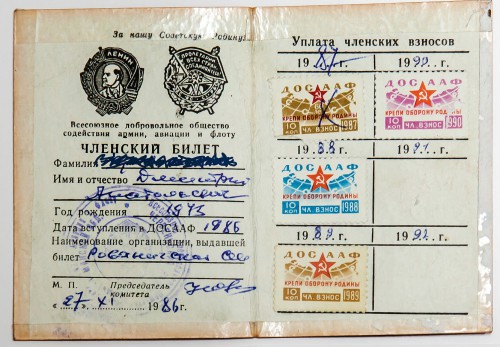 За нашу Советскую Родину!
ЛЕНИН
ПРОЛЕТАРИИ ВСЕХ СТРАН СОЕДИНЯЙТЕСЬ!
Всесоюзное добровольное общество
содействия армии, авиации и флоту
ЧЛЕНСКИЙ БИЛЕТ
Фамилия
Имя и отчество Дмитрий
Анатольевич
Год рождения 1973
Дата вступления в ДОСААФ 1986
Наименование организации, выдавшей
билет
М. П. Председатель
комитета
„27“ XI 1986 г.
Уплата членских взносов
1987 г. 1990 г.
ДОСААФ ДОСААФ
КРЕПИ ОБОРОНУ РОДИНЫ КРЕПИ ОБОРОНУ РОДИНЫ
10 КОП ЧЛ. ВЗНОС 1987 10 КОП ЧЛ. ВЗНОС 1990
1988 г. 1991 г.
ДОСААФ
КРЕПИ ОБОРОНУ РОДИНЫ
10 КОП ЧЛ. ВЗНОС 1988
1989 г. 1992 г.
ДОСААФ
КРЕПИ ОБОРОНУ РОДИНЫ
10 КОП ЧЛ. ВЗНОС 1989